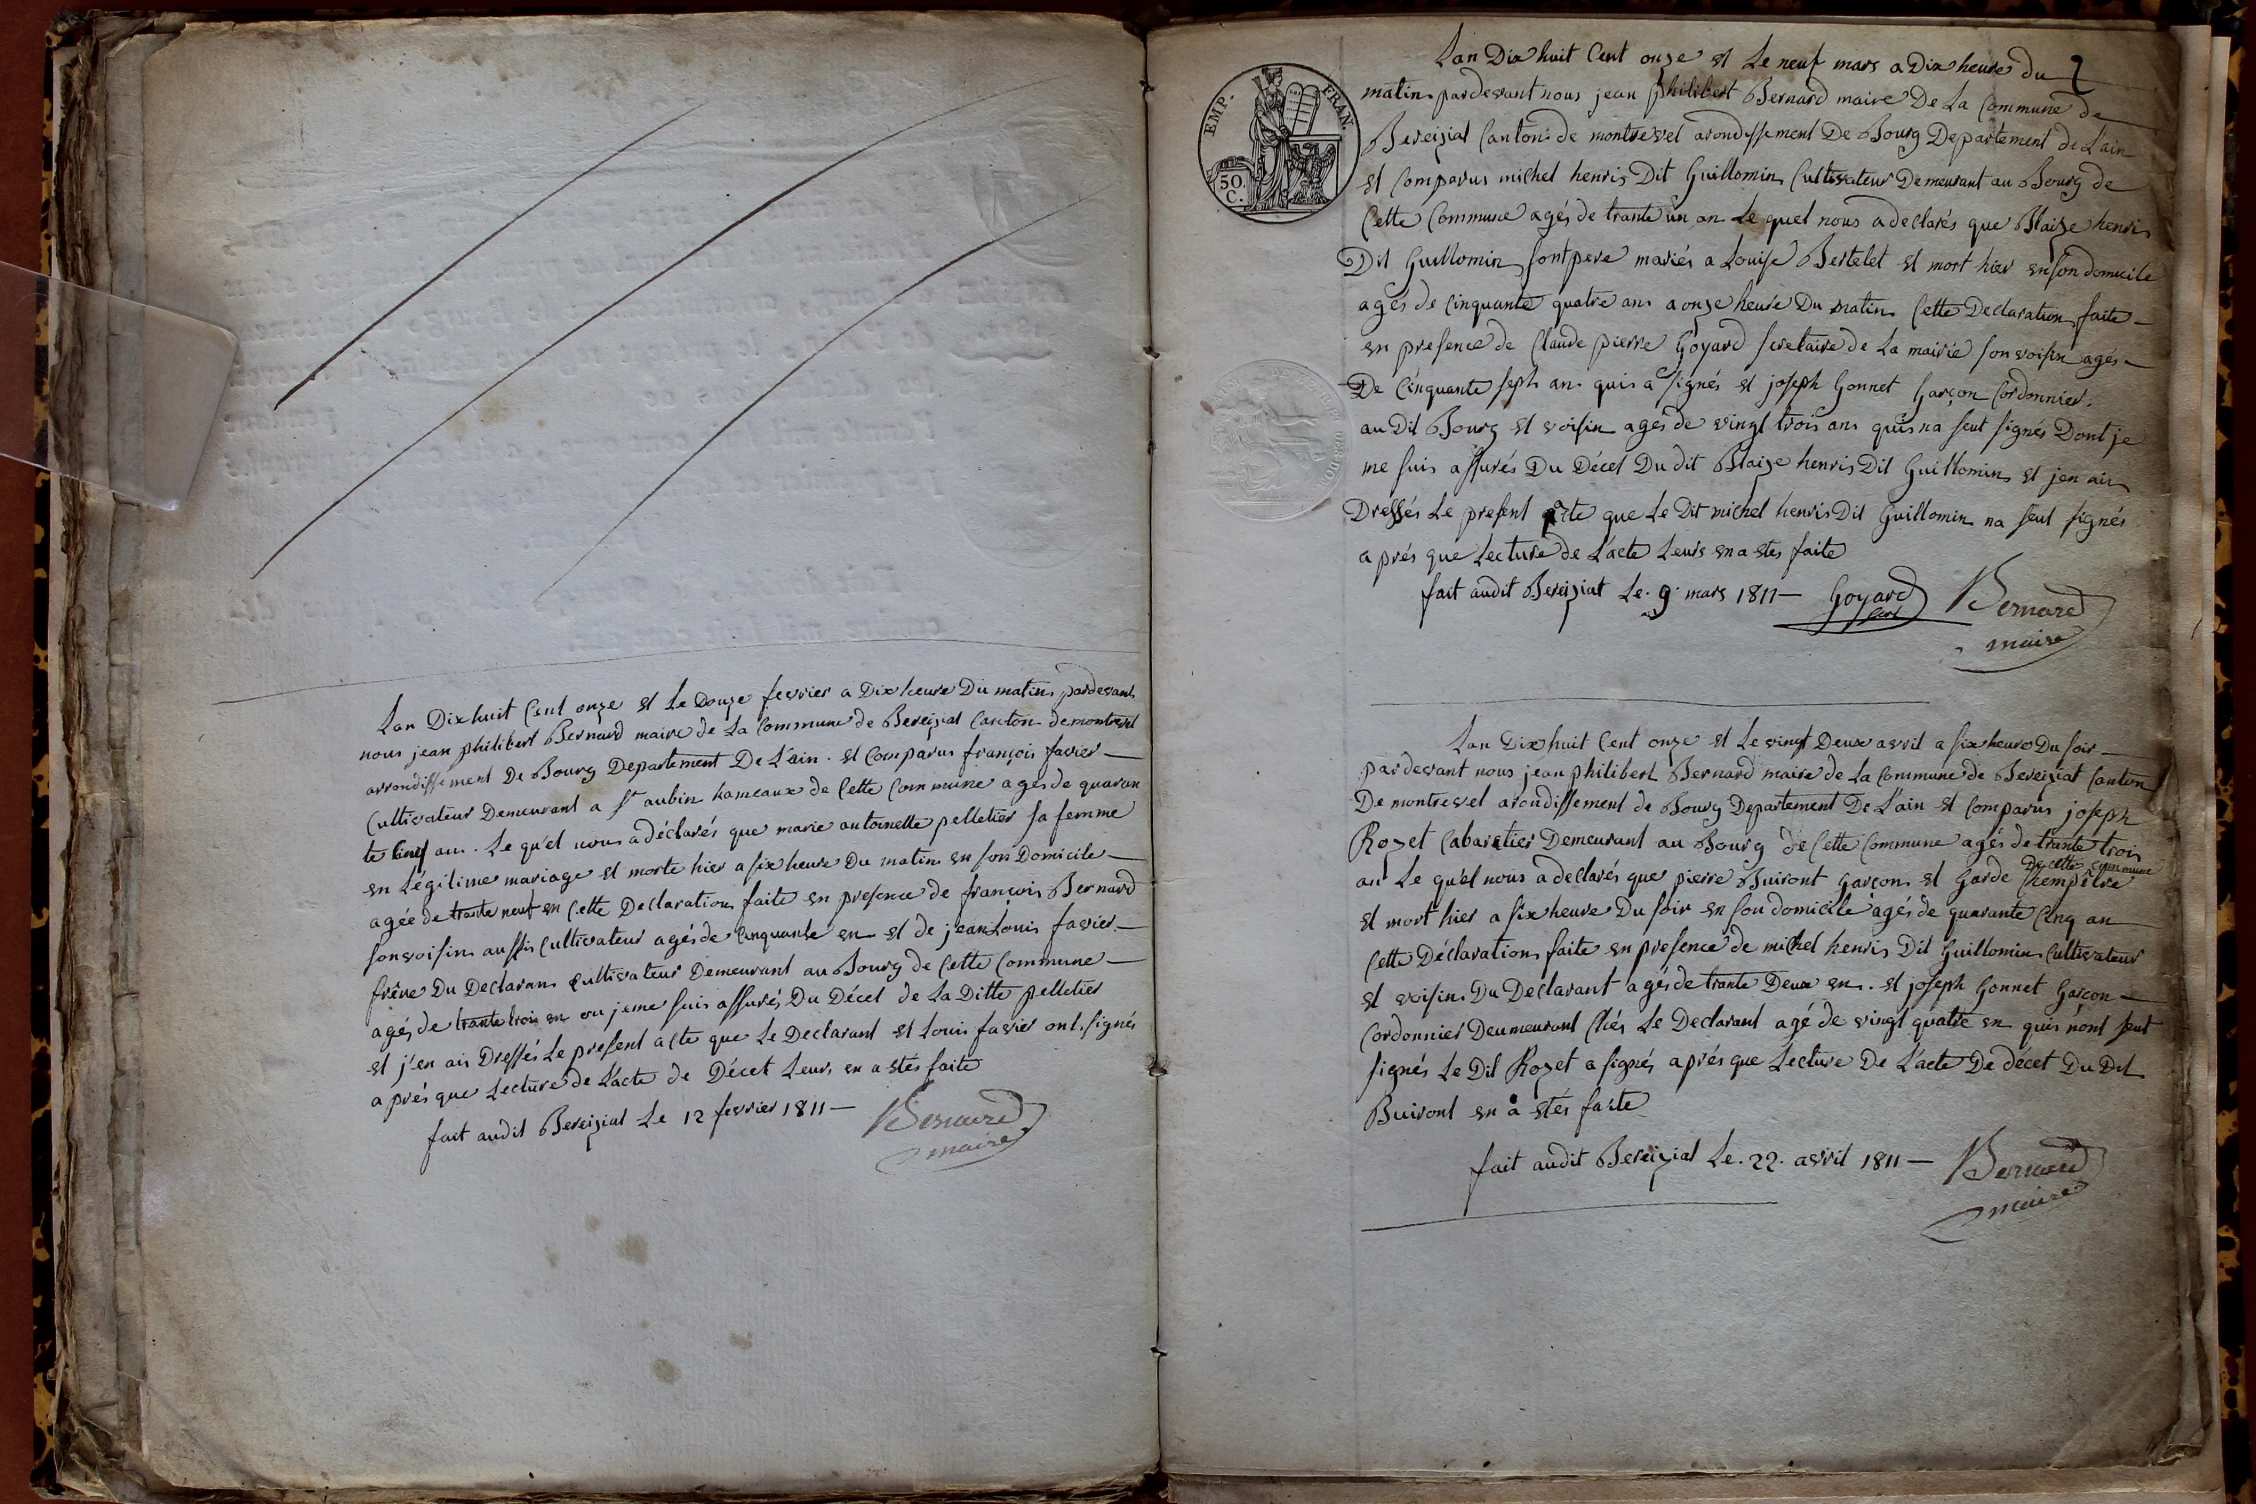 Lan Dix huit Cent onze et Le Douze fevrier a Dix heure Du matin pardevant
nous jean philibert Bernard maire de La Commune de Bereiziat Canton de montrevel
arrondissement De Bourg Departement De L'ain . et Comparus françois favier —
Cultivateur Demeurant a St aubin hameaux de Cette Commune agés de quaran
te Cinq an . Le qu'el nous a déclarés que marie antoinette pelletier sa femme
en Légitime mariage et morte hier a six heure Du matin en son Domicile —
agée de trante neuf en Cette Declaration faite en presence de françois Bernard
son voisin aussis Cultivateur agés de Cinquante en et de jean Louis favier —
frêre Du Declarans Cultivateur Demeurant au Bourg de Cette Commune —
agés de trante trois en ou jeme suis assurés Du Décet de La Ditte pelletier
et j'en ais Dressés Le present acte que Le Declarant et Louis favier ont signés
a prés que Lecture de L'acte de Décet Leurs en a etes faite
fait audit Bereiziat Le 12 fevrier 1811 — Bernard
maire
EMP. FRAN.
50.
C.
Lan Dix huit Cent onze et Le neuf mars a Dix heure du
matin pardevant nous jean philibert Bernard maire De La Commune de
Bereiziat Canton de montrevel arondissement De Bourg Departement de L'ain
et Comparus michel henris Dit Guillomin Cultivateur Demeurant au Bourg de
Cette Commune agés de trante un an Le quel nous a declarés que Blaize henris
Dit Guillomin sont pere mariés a Louise Bertelet et mort hier en son domicile
agés de Cinquante quatre ans a onze heure Du matin Cette Declaration faite —
en presence de Claude pierre Goyard secretaire de La mairie son voisin agés —
De Cinquante sept an . quis a signés et joseph Gonnet Garçon Cordonnier .
au Dit Bourg et voisin agés de vingt trois ans quis na seut signés Dont je
me suis assurés Du Décet Du dit Blaize henris Dit Guillomin et jen ais
Dressés Le present acte que Le Dit michel henris Dit Guillomin na seut signés
a prés que Lecture de L'acte Leurs en a etes faite
fait audit Bereiziat Le . 9 . mars 1811 — Goyard Bernard
maire
Lan Dix huit Cent onze et Le vingt Deux avril a six heure Du soir —
pardevant nous jean philibert Bernard maire de La Commune de Bereiziat Canton
De montrevel arondissement de Bourg Departement De L'ain et Comparus joseph
Rozet Cabaretier Demeurant au Bourg de Cette Commune agés de trante trois
an Le qu'el nous a declarés que pierre Buiront Garçon et Garde Chempêtre De cette Commune
et mort hier a six heure Du soir en son domicile agés de quarante Cinq an
Cette Déclaration faite en presence de michel henris Dit Guillomin Cultivateur
et voisin Du Declarant agés de trante Deux en . et joseph Gonnet Garcon —
Cordonnier Deumeurant Chés Le Declarant agé de vingt quatre en quis nont seut
signés Le Dit Rozet a signés a prés que Lecture De L'acte De décet Du Dit
Buiront en a etés faite
fait audit Bereiziat Le . 22 . avril 1811 — Bernard
maire